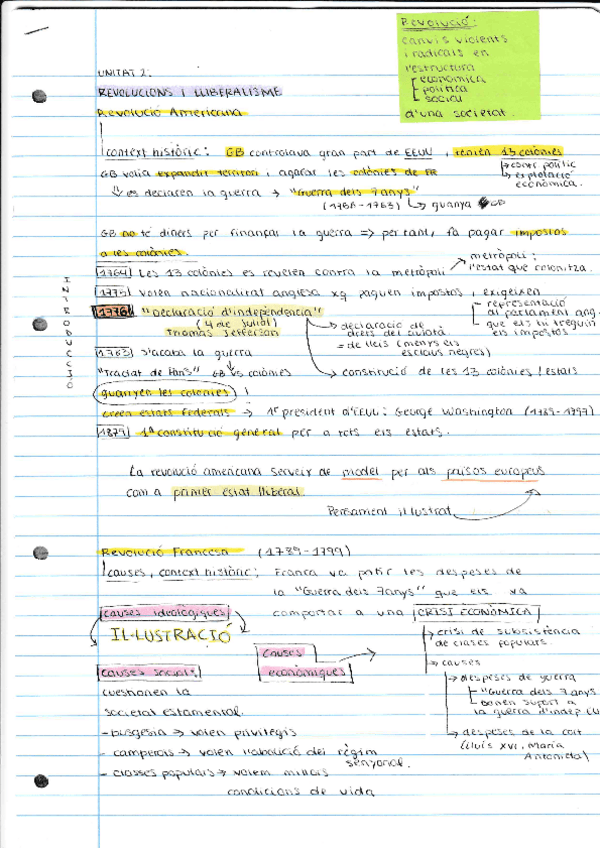 Revolució:
canvis violents
i radicals en
l'estructura
econòmica
política
social
d'una societat.
UNITAT 2:
REVOLUCIONS I LLIBERALISME
Revolució Americana
context històric: GB controlava gran part de EEUU, tenien 13 colònies
control polític
explotació
econòmica.
GB volia expandir territori i agafar les colònies de FR
es declaren la guerra → "Guerra dels 7 anys"
(1756-1763) guanya GB
GB no té diners per finançar la guerra => per tant, fa pagar impostos
a les colònies.
metròpoli:
l'estat que colonitza.
1764 Les 13 colònies es revelen contra la metròpoli
1775 volen nacionalitat anglesa xq paguen impostos, i exigeixen
representació
al parlament ang.
que els hi treguin
els impostos
1776 "Declaració d'independència"
(4 de juliol)
Thomas Jefferson
declaració de
drets del
= de lleis (menys els
esclaus negres)
constitució de les 13 colònies / estats
INTRODUCCIÓ
1783 s'acaba la guerra
"Tractat de París" GB vs colònies
guanyen les colonies !
Creen estats federals → 1r president d'EEUU: George Washington (1789-1797)
1879 1ª constitució general per a tots els estats.
La revolució americana serveix de model per als països europeus
com a primer estat lliberal.
Pensament il·lustrat
Revolució Francesa (1789-1799)
causes, context històric: França va patir les despeses de
la "Guerra dels 7 anys" que els va
comportar a una CRISI ECONÒMICA
causes ideològiques
IL·LUSTRACIÓ
crisi de subsistència
de classes populars.
causes
despeses de guerra
"Guerra dels 7 anys
donen suport a
la guerra d'indep
despeses de la cort
(Lluís XVI, Maria
Antonieta)
causes
econòmiques
causes socials
qüestionen la
societat estamental.
- burgesia → volen privilegis
- camperols → volen l'abolició del règim
senyorial.
- classes populars → volem millors
condicions de vida